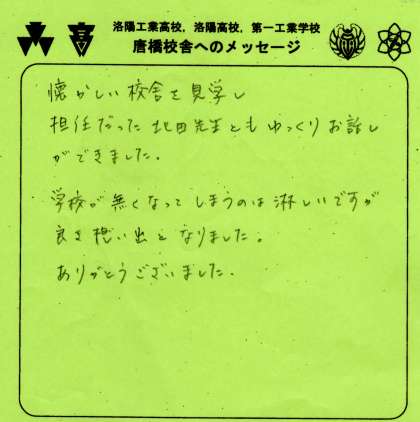 洛陽工業高校，洛陽高校，第一工業学校
唐橋校舎へのメッセージ
懐かしい校舎を見学し
担任だった北田先生ともゆっくりお話し
ができました。
学校が無くなってしまうのは淋しいですが
良き想い出となりました。
ありがとうございました。